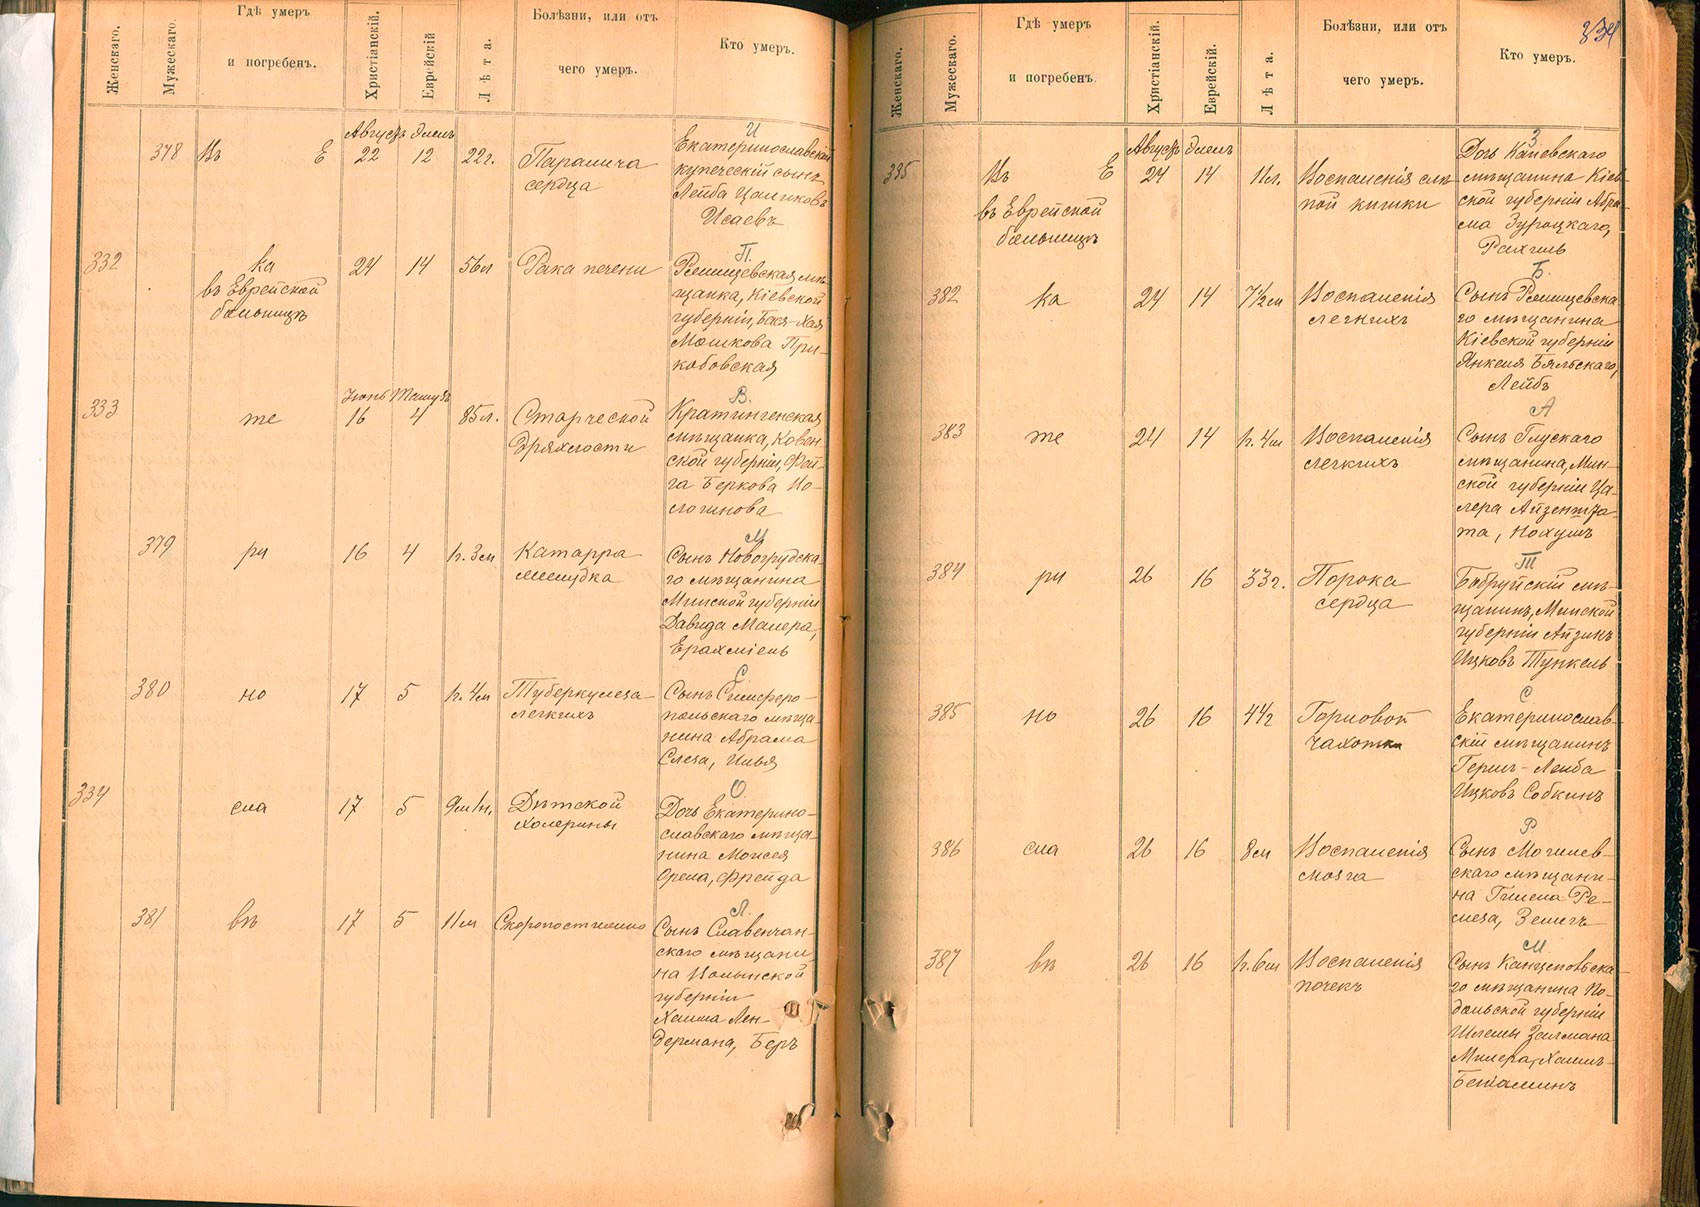 Женскаго.
Мужескаго.
Гдѣ умеръ
и погребенъ.
Христіанскій.
Еврейскій
Лѣта.
Болѣзни, или отъ
чего умеръ.
Кто умеръ.
Августъ Элелъ
И
378 Въ Е 22 12 22 г. Паралича
сердца
Екатеринославскій
купеческій сынъ
Лейба
Исаевъ
332 ка 24 14 56 л Рака печени
въ Еврейской
больницѣ
П.
Ржищевская мѣ-
щанка, Кіевской
губерніи, Бася-Хая
Мошкова При-
кобовская
Іюнь Тамузъ
333 же 16 4 85 л. Старческой
дряхлости
В.
Кратингенская
мѣщанка, Ковен
ской губерніи, Фей-
га Беркова
379 ри 16 4 1 г. 3 м Катарра
желудка
М
Сынъ Новогрудска-
го мѣщанина
Минской губерніи
Давида Малера,
Ерахміель
380 но 17 5 1 г. 4 м Туберкулеза
легкихъ
С
Сынъ Симферо-
польскаго мѣща-
нина Абрама
Слеза, Илья
334 сла 17 5 9 м 1 н. Дѣтской
холерины
О
Дочь Екатерино-
славскаго мѣща-
нина Моисея
Орела, Фрейда
381 въ 17 5 11 м Скоропостижно
Л.
Сынъ Славенчан-
скаго мѣщани-
на Волынской
губерніи
Хаима Лен-
дермана, Беръ
334
Женскаго.
Мужескаго.
Гдѣ умеръ
и погребенъ
Христіанскій.
Еврейскій.
Лѣта.
Болѣзни, или отъ
чего умеръ.
Кто умеръ.
Августъ Элелъ
З
335 Въ Е 24 14 11 л. Воспаленія слѣ-
пой кишки
въ Еврейской
больницѣ
Дочь Каневскаго
мѣщанина Кіев-
ской губерніи Абра-
ма Зуроцкаго,
Рахиль
Б.
382 ка 24 14 7½ м Воспаленія
легкихъ
Сынъ Ржищевска-
го мѣщанина
Кіевской губерніи
Янкеля Бяльскаго,
Лейбъ
А
383 же 24 14 1 г. 4 м Воспаленія
легкихъ
Сынъ Глускаго
мѣщанина, Мин-
ской губерніи Ца-
лера Айзеншта-
та, Нохумъ
Т
384 ри 26 16 33 г. Порока
сердца
Бобруйскій мѣ-
щанинъ, Минской
губерніи Айзикъ
Ицковъ Тункель
С
385 но 26 16 44 г Горловой
чахотки
Екатеринослав-
скій мѣщанинъ
Герш-Лейба
Ицковъ Собкинъ
Р
386 сла 26 16 8 м Воспаленія
мозга
Сынъ Могилев-
скаго мѣщани-
на Гилела Ре-
меза, Зеликъ
М
387 въ 26 16 1 г. 6 м Воспаленія
почекъ
Сынъ
го мѣщанина По-
дольской губерніи
Шлемы Залмана
Милера, Хаимъ-
Беніаминъ